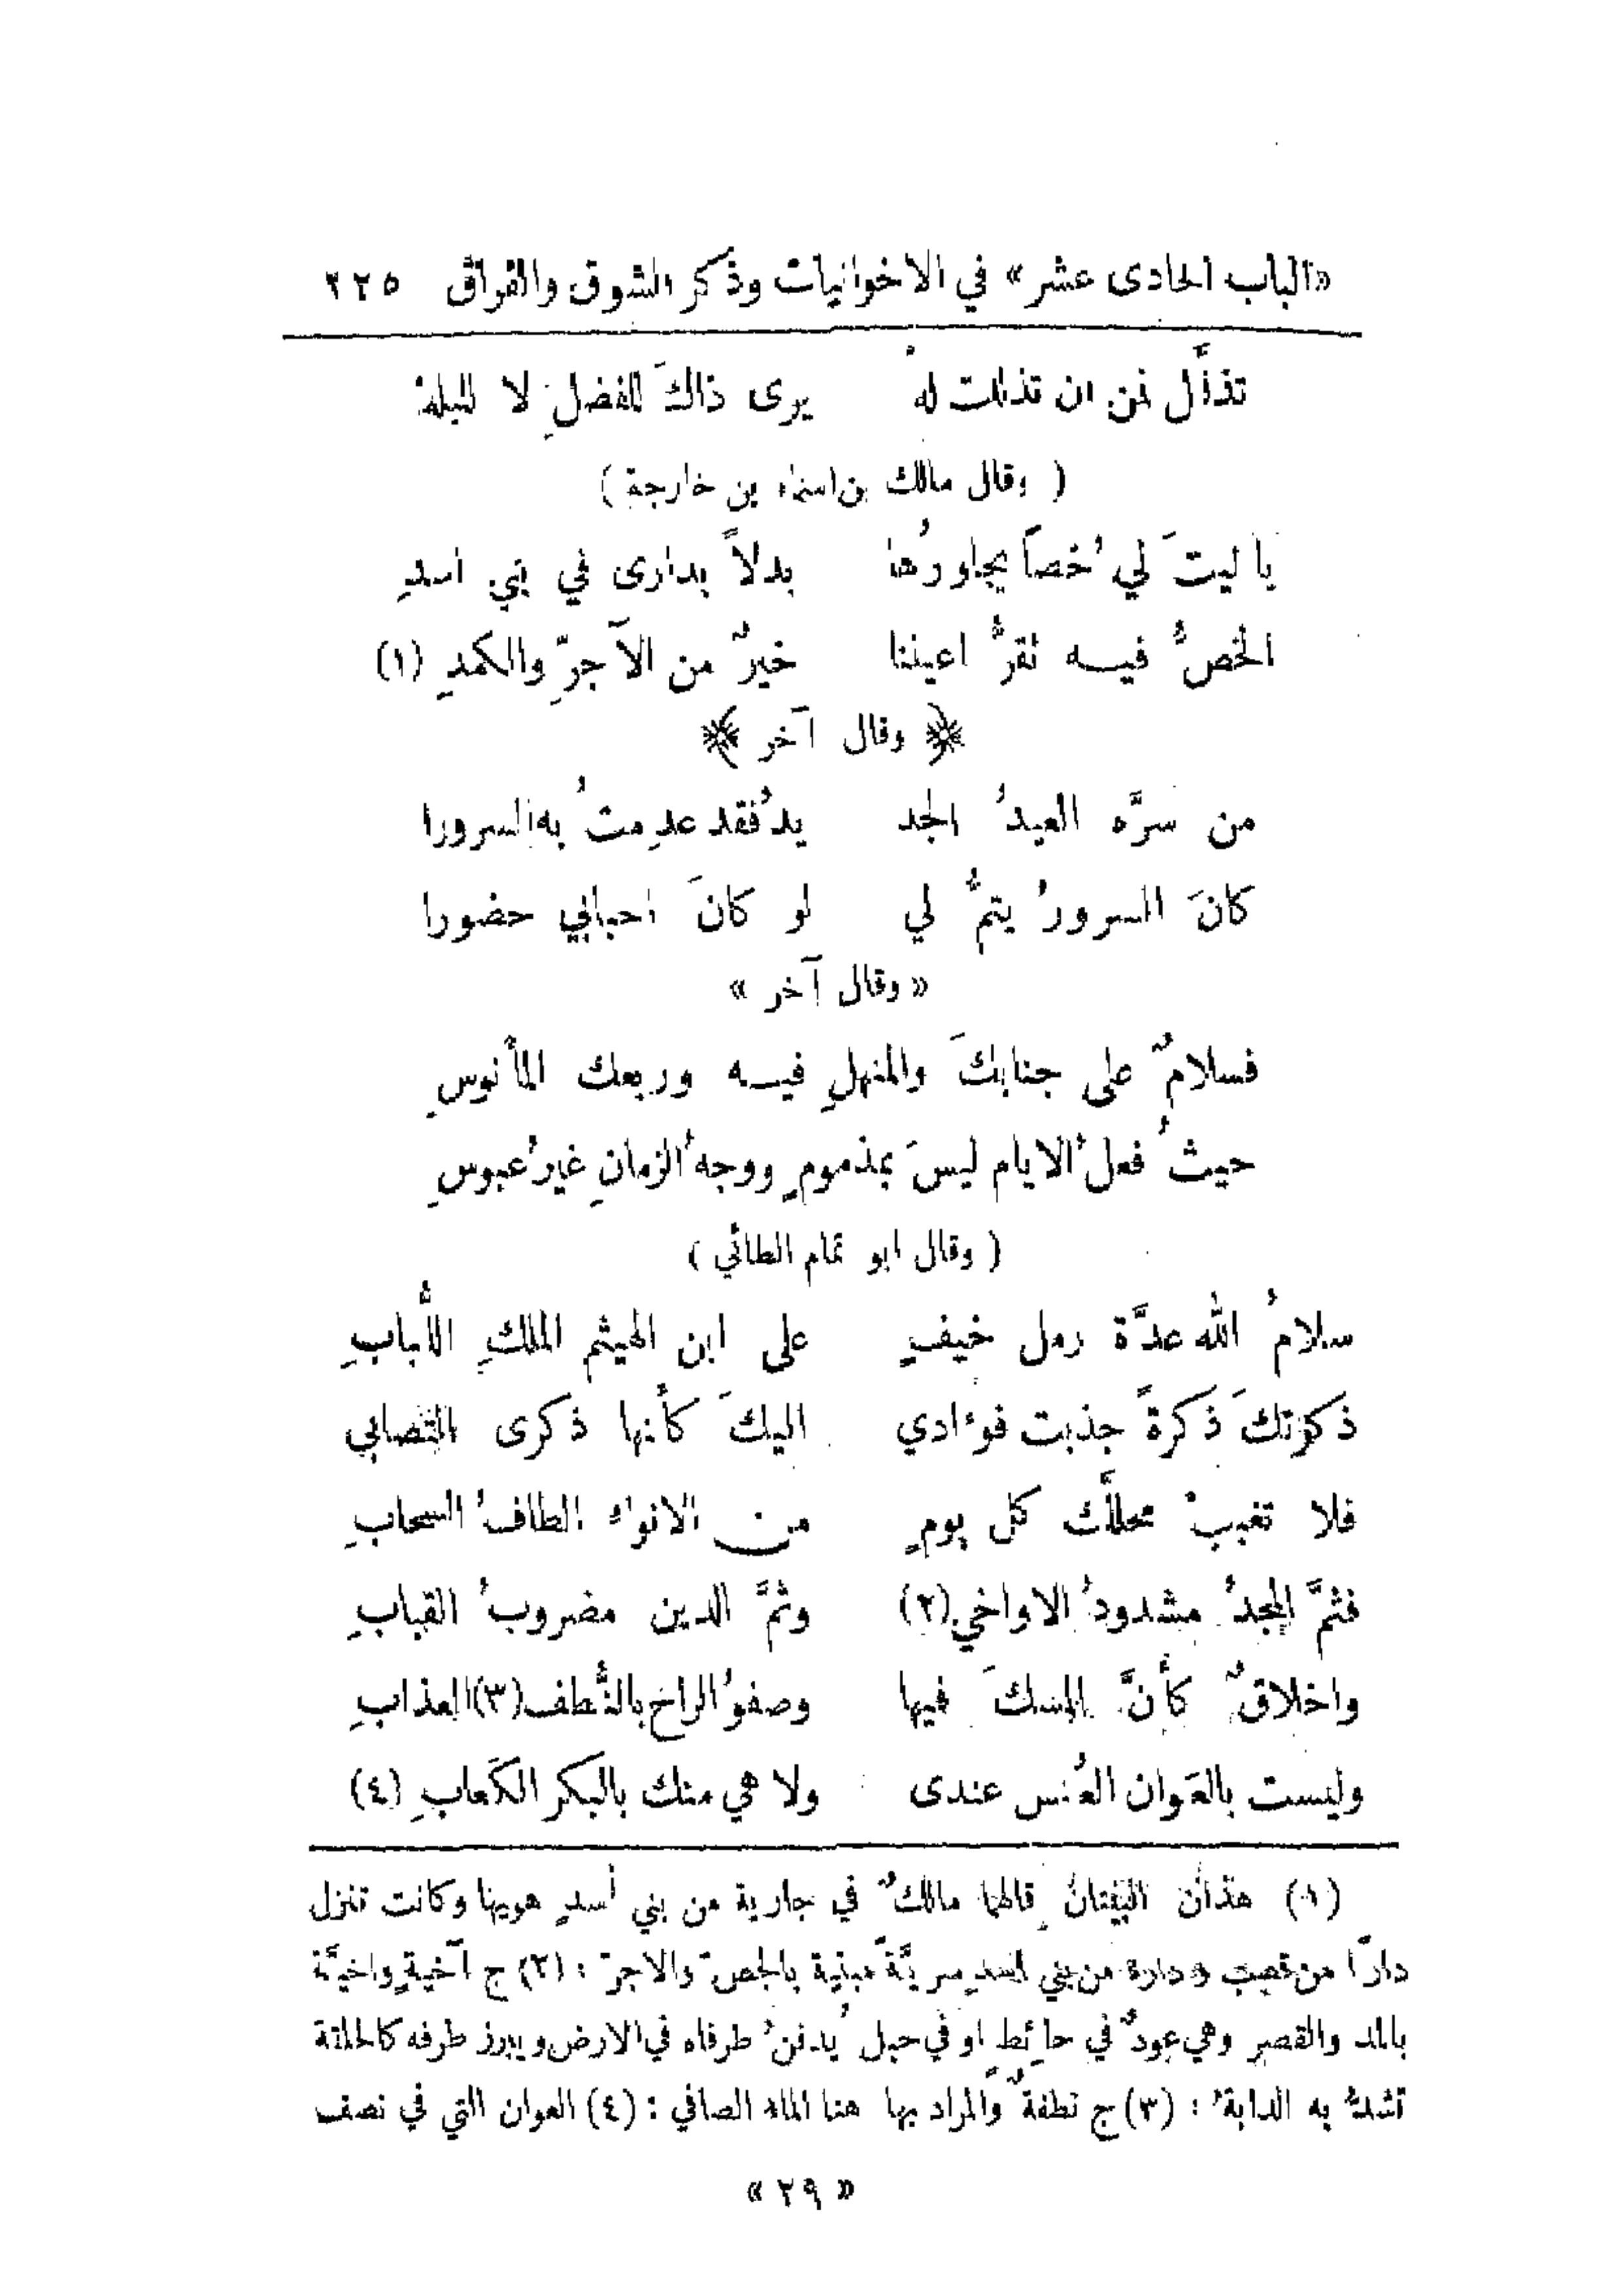 «الباب الحادى عشر» في الاخوانيات وذكر الشوق والفراق ٢٢٥
تذلَّل لمن ان تذللت لهُ يرى ذاكَ للفضلِ لا للبلهْ
( وقال مالك بن اسماء بن خارجة )
يا ليتَ لي خُصاً يجاورُها بدلاً بدارى في بني اسدِ
الخصُّ فيه تقرُّ اعيننا خيرٌ من الآجرِّ والكمدِ (١)
﴿ وقال آخر ﴾
من سرَّه العيدُ الجد يدُ فقد عدِمتُ به السرورا
كانَ السرورُ يتمُّ لي لو كانَ احبابي حضورا
« وقال آخر »
فسلامٌ على جنابكَ والمنهلِ فيه وربعك المأنوسِ
حيثُ فعلُ الايام ليسَ بمذمومٍ ووجهُ الزمانِ غيرُ عبوسِ
( وقال ابو تمام الطائي )
سلامُ الله عدَّة رمل خيفٍ على ابن الهيثم الملكِ اللُّبابِ
ذكرتكَ ذكرةً جذبت فؤادي اليكَ كأنها ذكرى التصابي
فلا تغببْ محلَّك كل يومٍ من الانواء الطافُ السحابِ
فثمَّ المجدُ مشدودُ الاواخي (٢) وثمَّ الدين مضروبُ القبابِ
واخلاقٌ كأنَّ المسكَ فيها وصفوُ الراح بالنُّطف (٣) العذابِ
وليست بالعَوان العُنس عندى ولا هي منك بالبكر الكَعابِ (٤)
(١) هذان البيتان قالهما مالكٌ في جارية من بني أسدٍ هويها وكانت تنزل
دارًا من قصب وداره من بني اسدٍ سريَّةً مبنية بالجصّ والاجرّ : (٢) ج آخيةٍ واخيَّة
بالمد والقصرِ وهي عودٌ في حائطٍ او في حبل يُدفنُ طرفاه في الارض ويبرز طرفه كالحلقة
تشدُّ به الدابةُ : (٣) ج نطفةٌ والمراد بها هنا الماء الصافي : (٤) العوان التي في نصف
« ٢٩ »